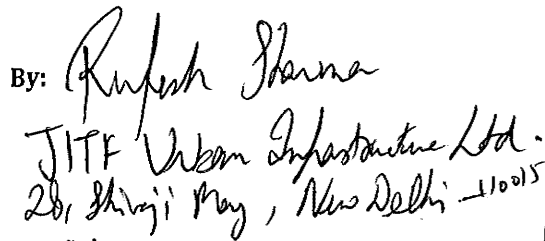 By: Rupesh Sharma
JITF Urban Infrastructure Ltd.
28, Shivaji Marg, New Delhi - 110015